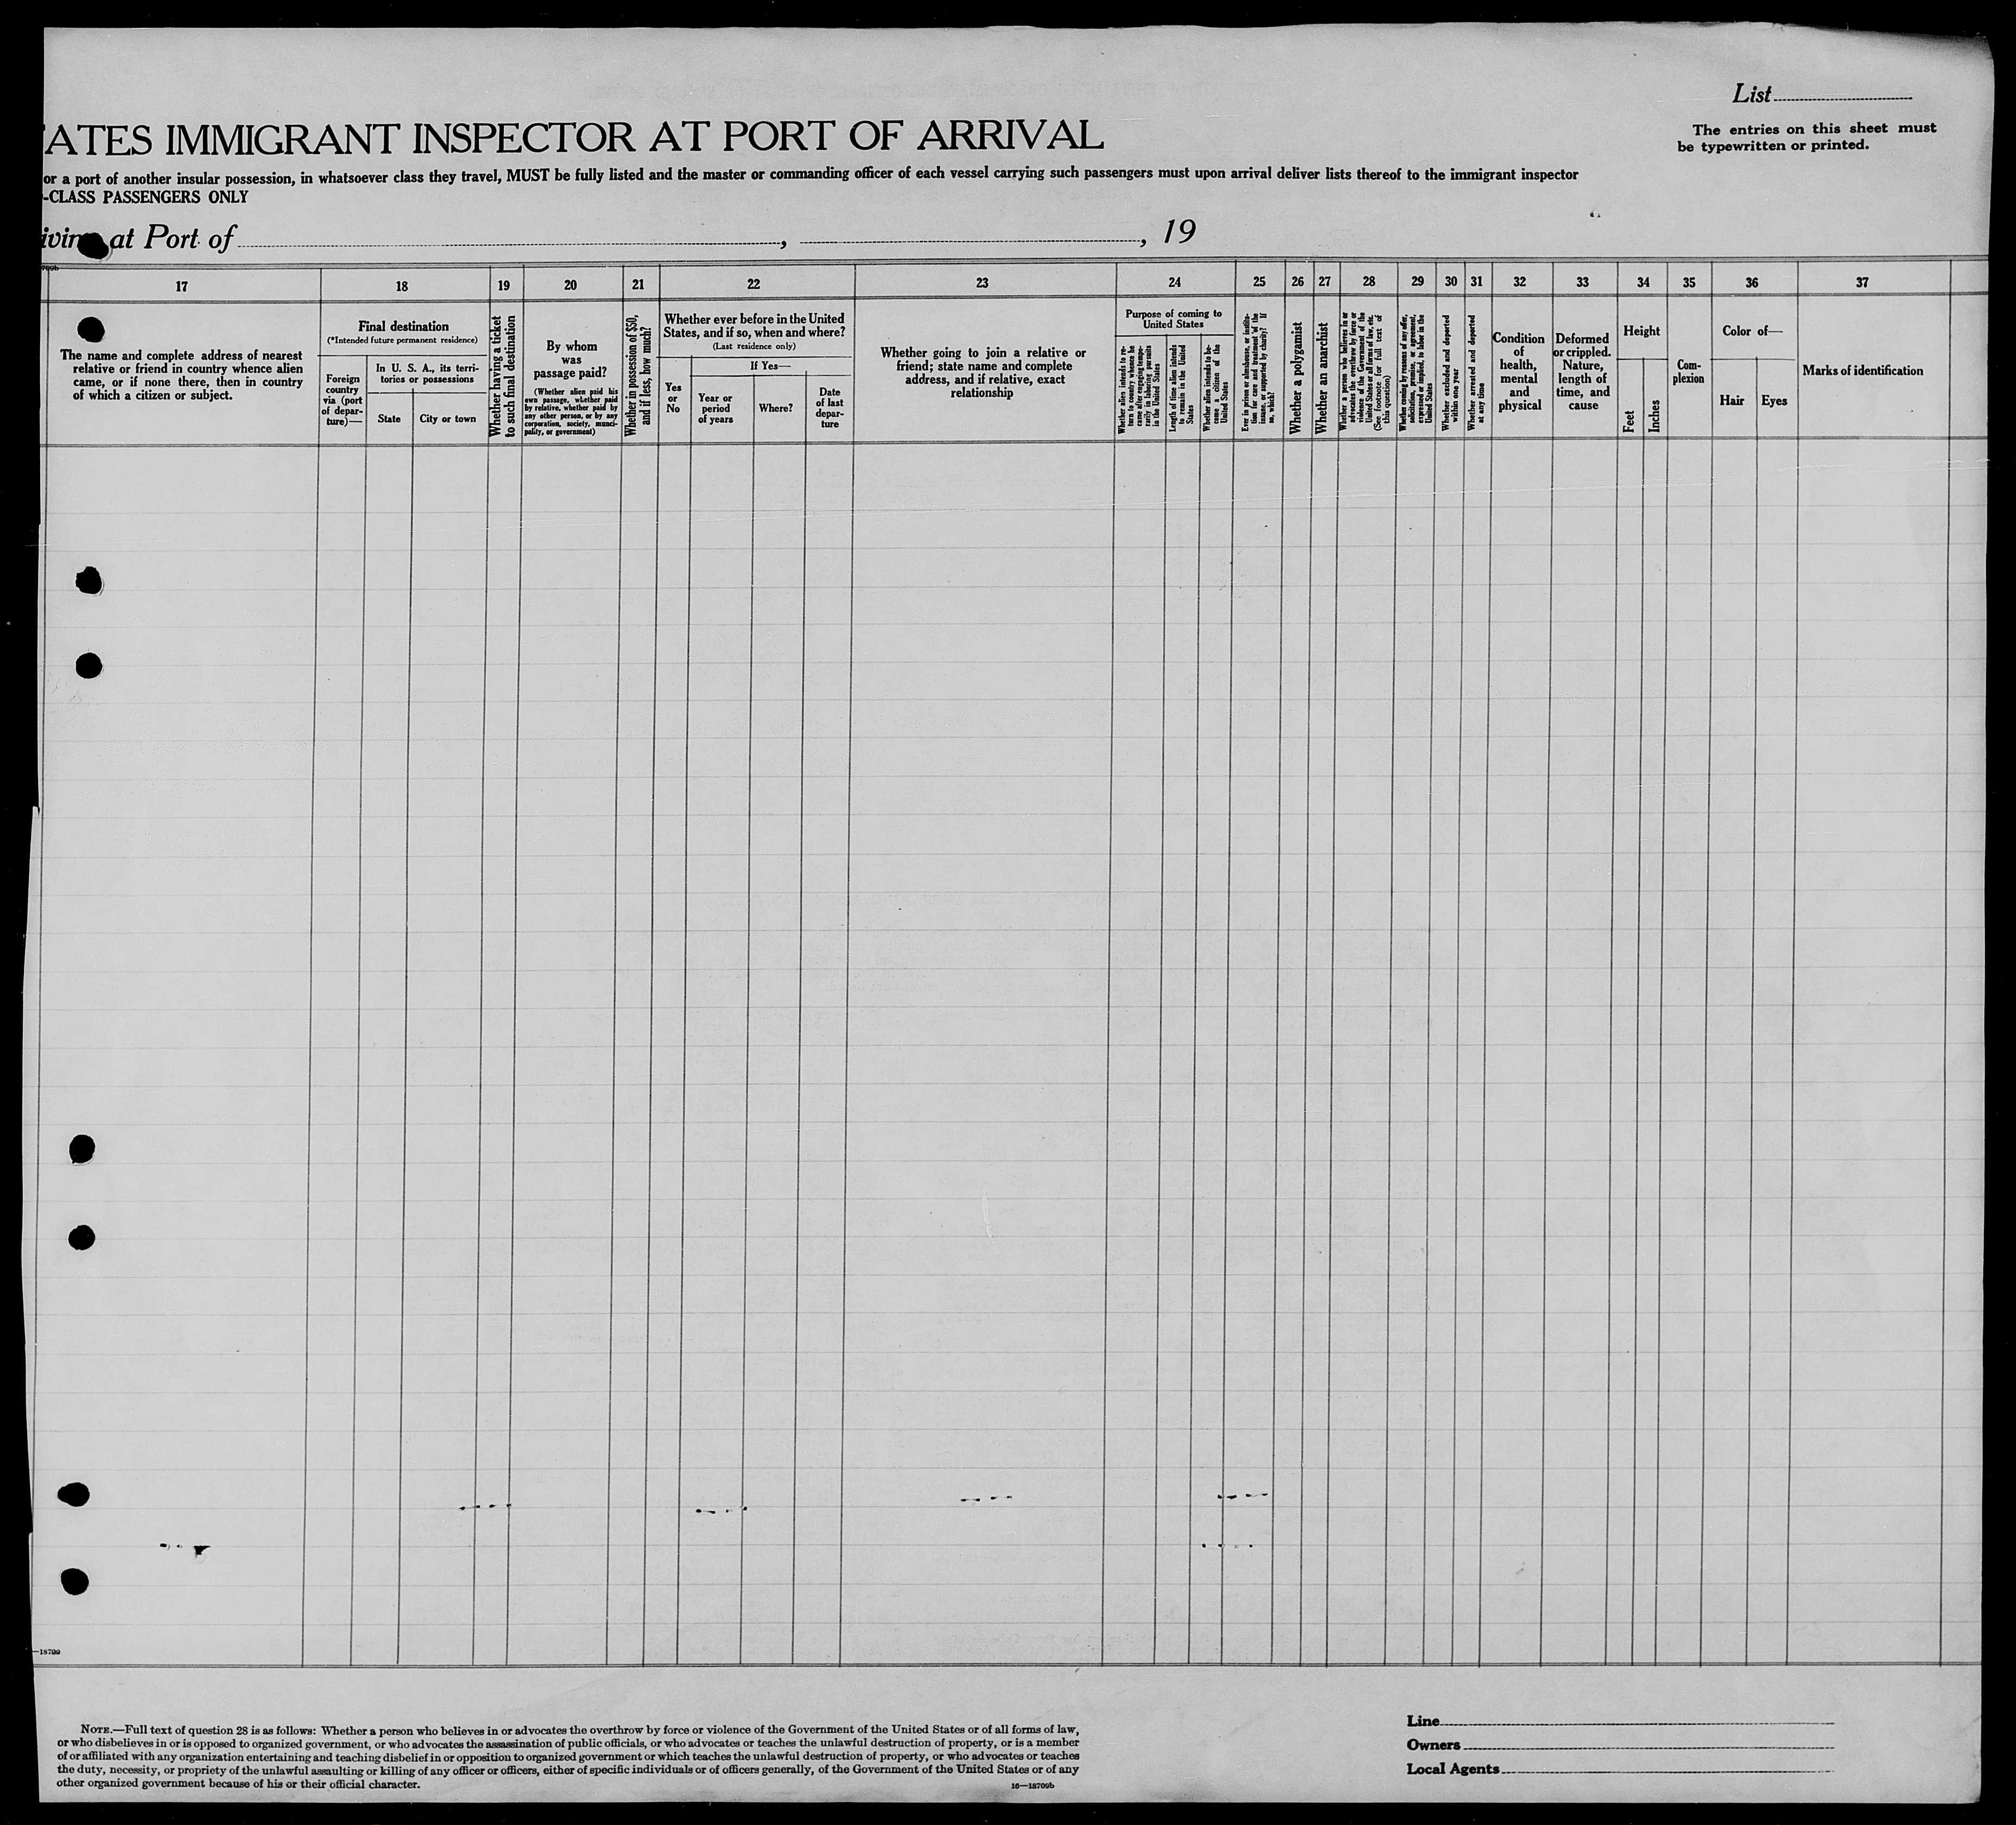 List
ATES IMMIGRANT INSPECTOR AT PORT OF ARRIVAL
The entries on this sheet must
be typewritten or printed.
or a port of another insular possession, in whatsoever class they travel, MUST be fully listed and the master or commanding officer of each vessel carrying such passengers must upon arrival deliver lists thereof to the immigrant inspector
-CLASS PASSENGERS ONLY
at Port of , , 19
17 18 19 20 21 22 23 24 25 26 27 28 29 30 31 32 33 34 35 36 37
The name and complete address of nearest
relative or friend in country whence alien
came, or if none there, then in country
of which a citizen or subject.
Final destination
(*Intended future permanent residence)
Foreign
country
via (port
of depar-
ture)—
In U. S. A., its terri-
tories or possessions
State
City or town
Whether having a ticket
to such final destination
By whom
was
passage paid?
(Whether alien paid his
own passage, whether paid
by relative, whether paid by
any other person, or by any
corporation, society, munici-
pality, or government)
Whether in possession of $50,
and if less, how much?
Whether ever before in the United
States, and if so, when and where?
(Last residence only)
Yes
or
No
If Yes—
Year or
period
of years
Where?
Date
of last
depar-
ture
Whether going to join a relative or
friend; state name and complete
address, and if relative, exact
relationship
Purpose of coming to
United States
Whether alien intends to re-
turn to country whence he
came after engaging tempo-
rarily in laboring pursuits
in the United States
Length of time alien intends
to remain in the United
States
Whether alien intends to be-
come a citizen of the
United States
Ever in prison or almshouse, or institu-
tion for care and treatment of the
insane, or supported by charity? If
so, which?
Whether a polygamist
Whether an anarchist
Whether a person who believes in or
advocates the overthrow by force or
violence of the Government of the
United States or all forms of law, etc.
(See footnote for full text of
this question)
Whether coming by reasons of any offer,
solicitation, promise, or agreement,
expressed or implied, to labor in the
United States
Whether excluded and deported
within one year
Whether arrested and deported
at any time
Condition
of
health,
mental
and
physical
Deformed
or crippled.
Nature,
length of
time, and
cause
Height
Feet
Inches
Com-
plexion
Color of—
Hair
Eyes
Marks of identification
—18709
NOTE.—Full text of question 28 is as follows: Whether a person who believes in or advocates the overthrow by force or violence of the Government of the United States or of all forms of law,
or who disbelieves in or is opposed to organized government, or who advocates the assassination of public officials, or who advocates or teaches the unlawful destruction of property, or is a member
of or affiliated with any organization entertaining and teaching disbelief in or opposition to organized government or which teaches the unlawful destruction of property, or who advocates or teaches
the duty, necessity, or propriety of the unlawful assaulting or killing of any officer or officers, either of specific individuals or of officers generally, of the Government of the United States or of any
other organized government because of his or their official character.
16—18709b
Line
Owners
Local Agents